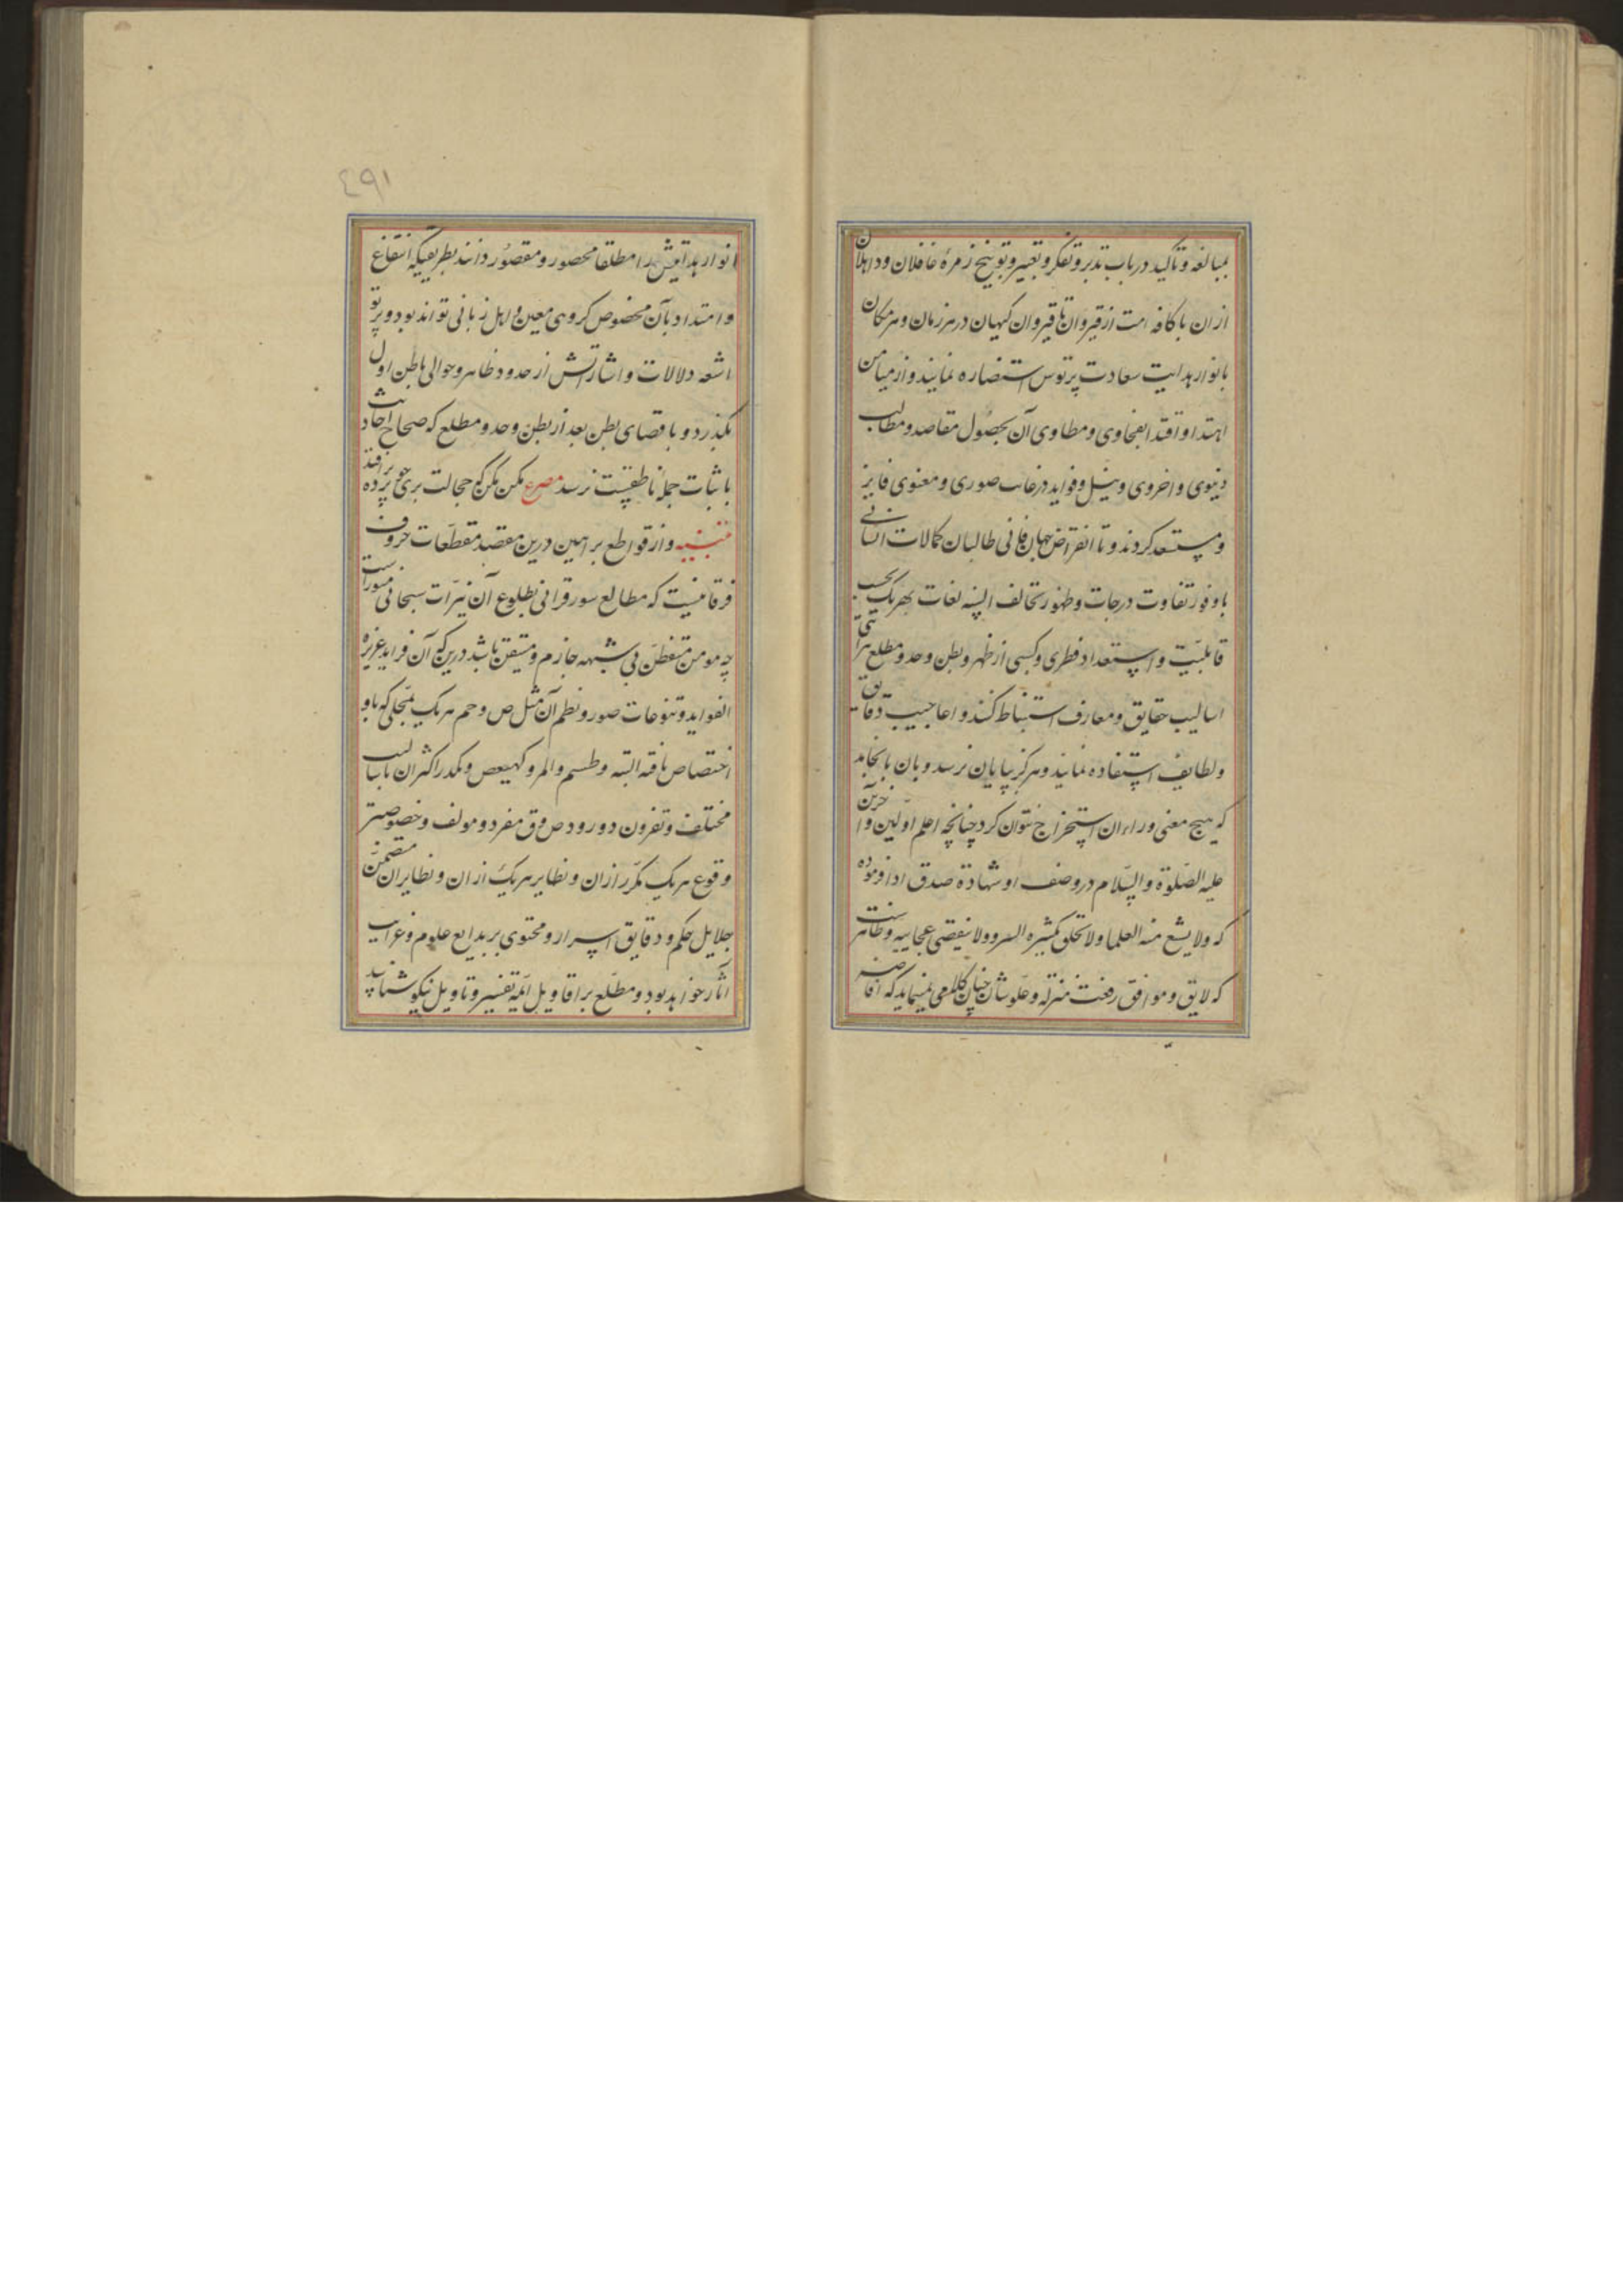 بمبالغه و تاکید در باب تدبر و تفکر و تعییر و توبیخ زمرهٔ غافلان و ذاهلان
ازان با کافه امت از قیروان تا قیروان کیهان در هر زمان و هر مکان
بانوار هدایت سعادت پرتوش استضاره نمایند و از میامن
اهتدا و اقتدا بفحاوی و مطاوی آن بحصول مقاصد و مطالب
دنیوی و اخروی و نیل و فواید رغایب صوری و معنوی فایز
و مستعد کردند و تا انقراض جهان فانی طالبان کمالات انسانی
با وفور تفاوت درجات و ظهور تخالف السنه لغات هریک بحسب
قابلیت و استعداد فطری و کسبی از ظهر و بطن و حد و مطلع
اسالیب حقایق و معارف استنباط کنند و اعاجیب دقایق
و لطایف استفاده نمایند و هرکز بپایان نرسد و بان نانجامد
که هیچ معنی وراء ان استخراج نتوان کرد چنانچه اعلم اولین و اخرین
علیه الصلوة والسلام در وصف او شهادة صدق ادا فرموده
که ولا یشبع منه العلما ولا تخلق بکثیره الرد ولا ینقضی عجایبه و ظاهرست
که لایق و موافق رفعت منزله و علو شان چنان کلامی نمینماید که افاضه
٤٩١
انوار هدایتش را مطلقا محصور و مقصور دانند بطریقیکه انتفاع
و امتداد بآن مخصوص کروهی معین و اهل زبانی تواند بود و پرتو
اشعه دلالات و اشاراتش از حدود ظاهر و حوالی باطن اول
نکذرد و باقصای بطن بعد از بطن و حد و مطلع که صحاح احادیث
باثبات جمله ناطقست نرسد مصرع مکن مکن که خجالت بری چو پرده برافتد
تنبیه و از قواطع براهین درین مقصد مقطعات حروف
فرقانیست که مطالع سور قرانی بطلوع آن نیرات سبحانی منوراست
چه مومن متفطن بی شبهه جازم و متیقن باشد درین که آن فراید عزیزه
الفواید و تنوعات صور و نظم آن مثل ص و حم هریک بمحلی که باو
اختصاص یافته البته و طسم و المر و کهیعص و تکرر اکثر ان باسالیب
مختلف و تفرق دو ورود ص و ق مفرد و مولف و خصوصیت
وقوع هریک مکرر ازان و نظایر هریک ازان و نظایر ان متضمن
جلایل حکم و دقایق اسرار و محتوی بر بدایع علوم و غرایب
آثار خواهد بود و مطلع بر اقاویل ائمه تفسیر و تاویل نیکو شناسد